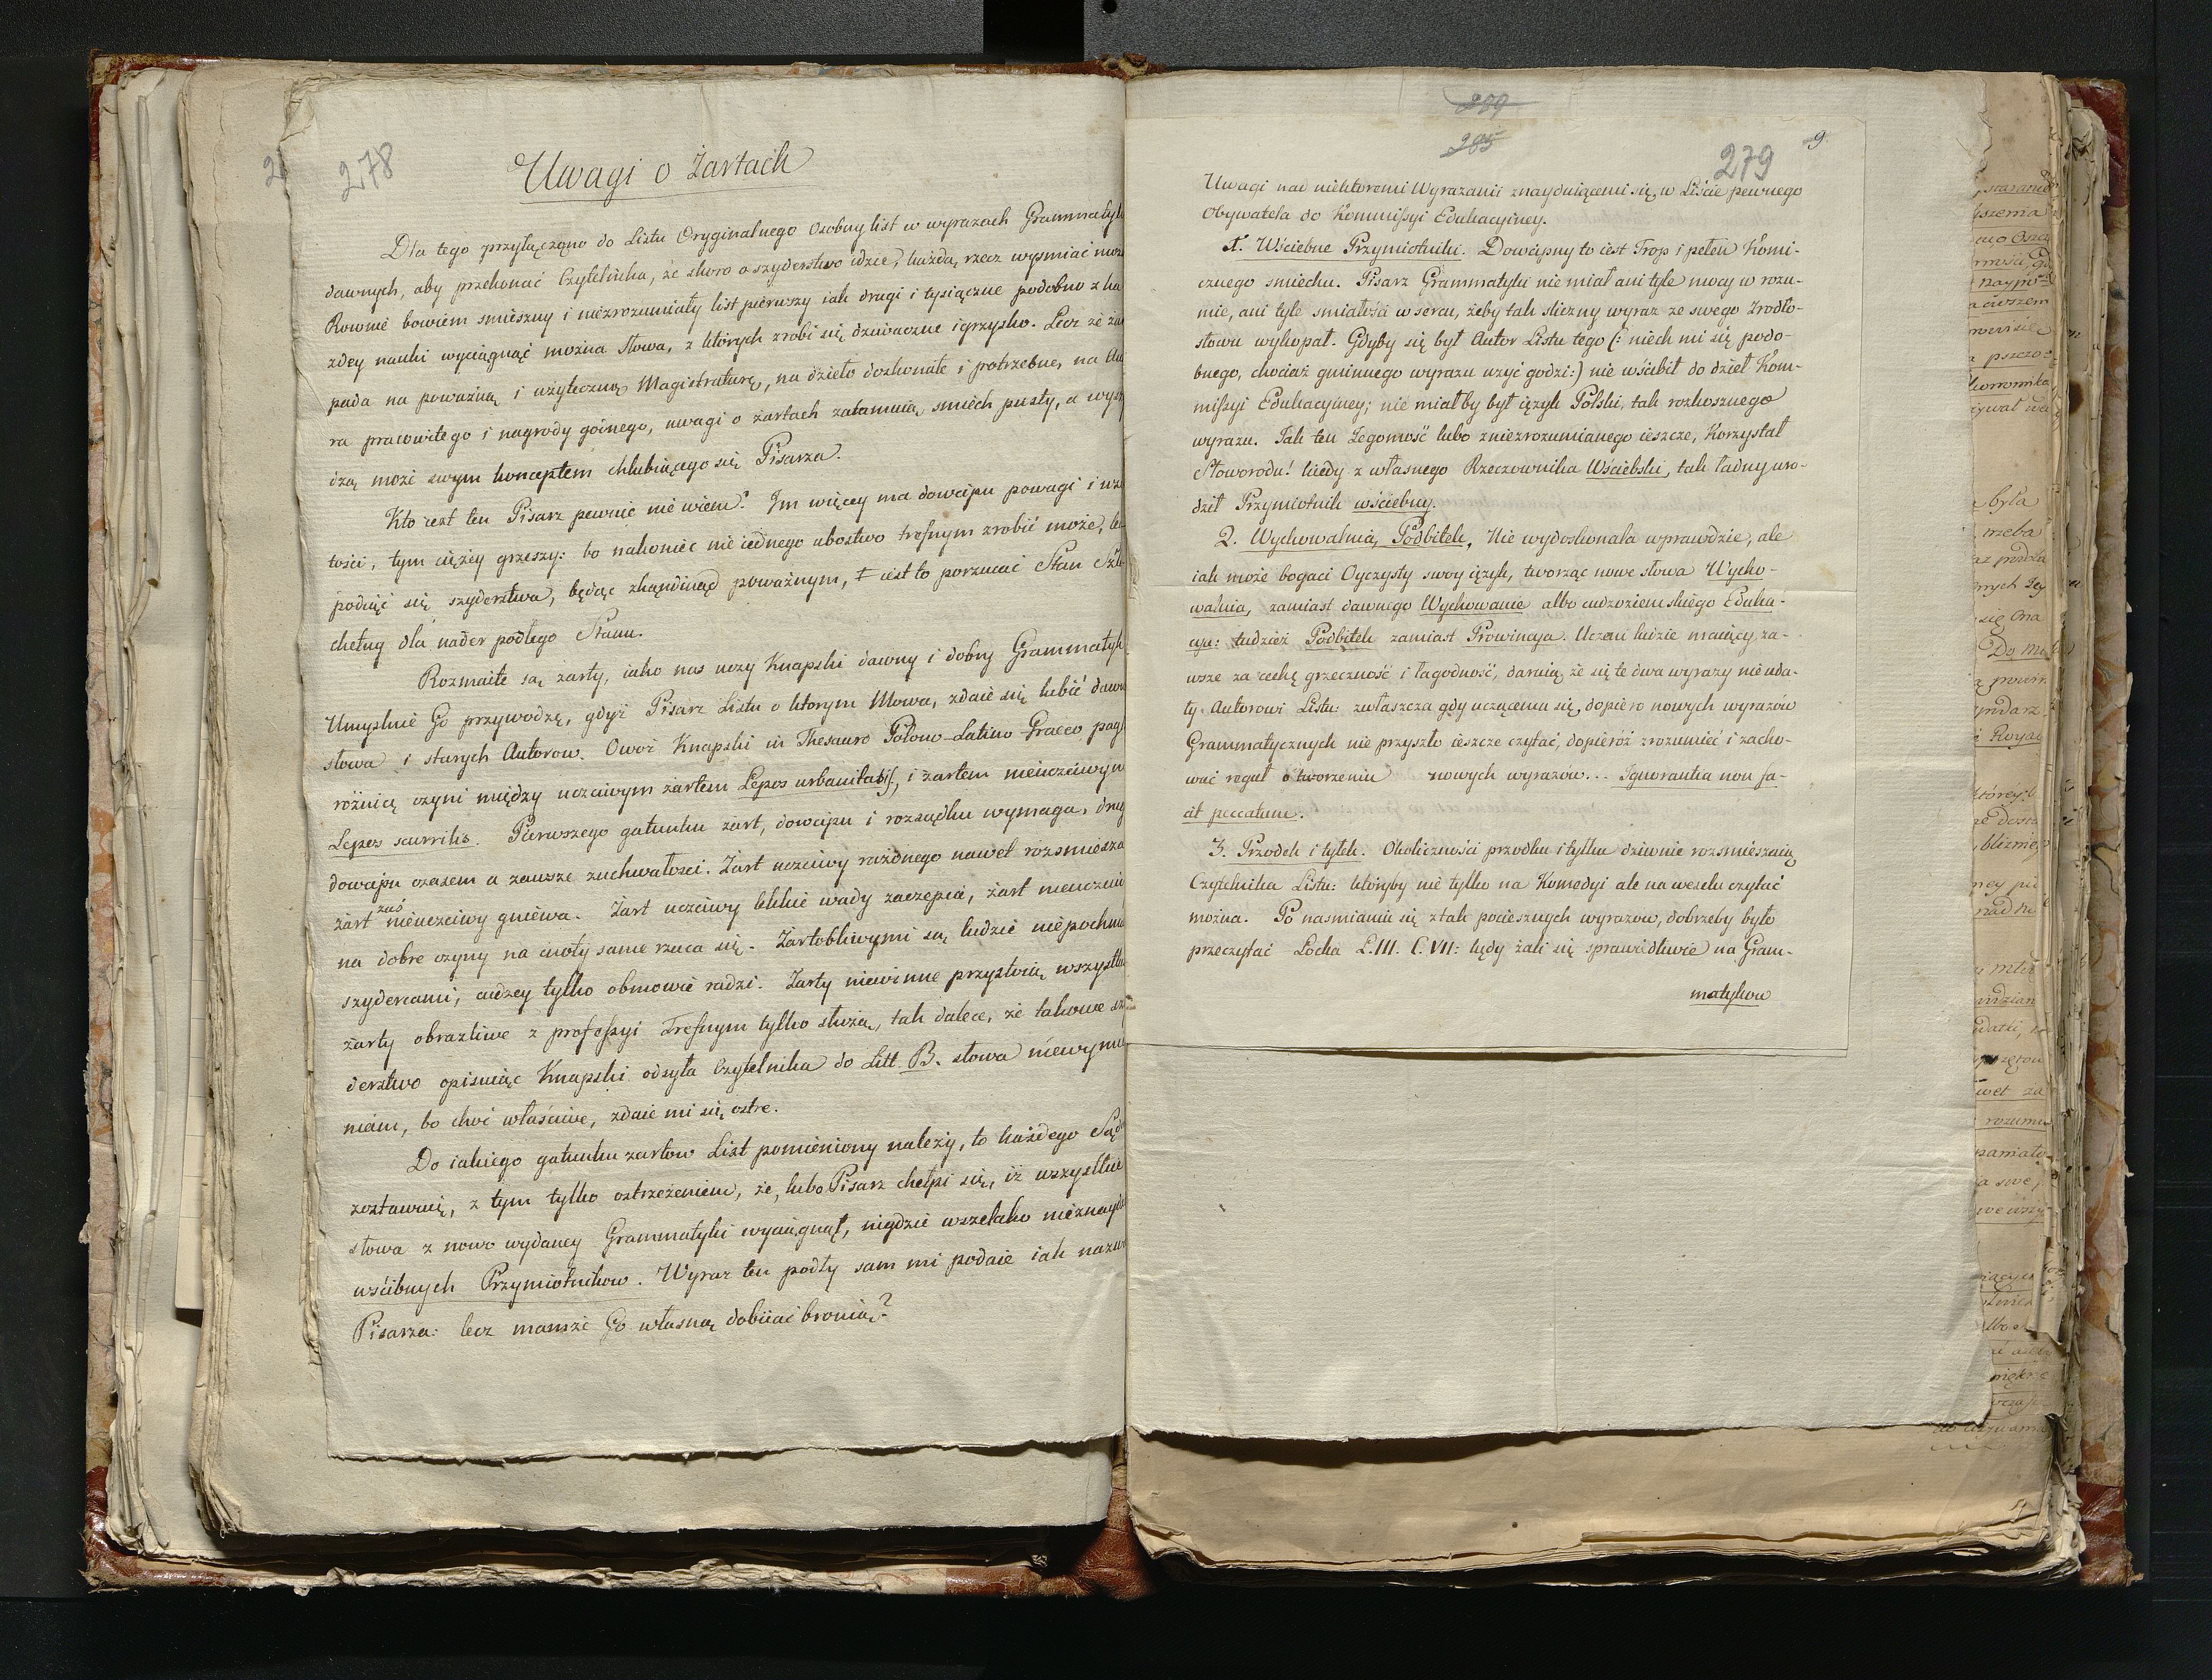 278
Uwagi o Żartach
Dla tego przyłączono do Listu Oryginalnego Osobny list w wyrazach Grammatyk
dawnych, aby przekonać Czytelnika, że skoro o szyderstwo idzie, każdą rzecz wysmiać moż
Rownie bowiem smieszny i niezrozumiały list pierwszy iak drugi i tysiączne podobno z ka
zdey nauki wyciągnąć można słowa, z ktorych zrobi się dziwaczne igrzysko. Lecz że żar
pada na poważną i użyteczną Magistraturę, na dzieło doskonałe i potrzebne, na Au
ra pracowitego i nagrody goinego, uwagi o żartach zatamuią smiech pusty, a wyst
dzą może swym konceptem chlubiącego się Pisarza.
Kto iest ten Pisarz pewnie nie wiem? Im więcey ma dowcipu powagi i wz
tości, tym ciężey grzeszy: bo nakoniec nie iednego ubostwo trefnym zrobić może, le
podiąć się szyderstwa, będąc zkądinąd poważnym, iest to porzucać Stan Szla
chetny dla nader podłego Stanu.
Rozmaite są żarty, iako nas uczy Knapski dawny i dobry Grammatyk.
Umyslnie Go przywodzę, gdyż Pisarz Listu o ktorym Mowa, zdaie się lubić dawn
słowa i starych Autorow. Owoż Knapski in Thesauro Polono-Latino-Graeco pag
różnicę czyni między uczciwym żartem Lepos urbanitatis, i żartem nieuczciwym
Lepos scurrilis. Pierwszego gatunku żart, dowcipu i rozsądku wymaga, drug
dowcipu czasem a zawsze zuchwałosci. Żart uczciwy rażonego nawet rozsmiesza
żart zaś nieuczciwy gniewa. Żart uczciwy lekkie wady zaczepia, żart nieuczciw
na dobre czyny na cnoty same rzuca się. Żartobliwymi są ludzie niepochmu
szydercami, cudzey tylko obmowie radzi. Żarty niewinne przystoią wszystki
żarty obrazliwe z professyi Trefnym tylko służą, tak dalece, że takowe szy
derstwo opisuiąc Knapski odsyła Czytelnika do Litt. B. słowa niewymie
niam, bo choć właściwe, zdaie mi się ostre.
Do iakiego gatunku żartow List pomieniony należy, to każdego Sąd
zostawuię, z tym tylko ostrzeżeniem, że, lubo Pisarz chełpi się, iż wszystkie
słowa z nowo wydaney Grammatyki wyciągnął, nigdzie wszelako nieznayd
wścibnych Przymiotnikow. Wyraz ten podły sam mi podaie iak nazw
Pisarza: lecz mamże Go własną dobiiać bronią?
289
285
279
9
Uwagi nad niektoremi Wyrazami znayduiącemi się w Liście pewnego
Obywatela do Kommissyi Edukacyiney.
1. Wściebne Przymiotniki. Dowcipny to iest Trop i pełen Komi-
cznego smiechu. Pisarz Grammatyki nie miał ani tyle mocy w rozu-
mie, ani tyle smiałości w sercu, żeby tak sliczny wyraz ze swego Zrodło-
słowu wykopał. Gdyby się był Autor Listu tego (: niech mi się podo-
bnego, chociaż gminnego wyrazu użyć godzi:) nie wścibił do dzieł Kom-
missyi Edukacyiney; nie miałby był ięzyk Polski, tak rozkosznego
wyrazu. Jak ten Jegomość lubo z niezrozumianego ieszcze, Korzystał
Słoworodu! kiedy z własnego Rzeczownika Wścielski, tak ładny uro-
dził Przymiotnik wściebny.
2. Wychowalnia, Podbitek, Nie wydoskonala wprawdzie, ale
iak może bogaci Oyczysty swoy ięzyk, tworząc nowe słowa Wycho-
walnia, zamiast dawnego Wychowanie albo cudzoziemskiego Eduka-
cya: tudzież Podbitek zamiast Prowincya. Uczeni ludzie maiący za-
wsze za cechę grzeczność i łagodność, daruią że się te dwa wyrazy nie uda-
ły Autorowi Listu: zwłaszcza gdy uczącemu się dopiero nowych wyrazów
Grammatycznych nie przyszło ieszcze czytać, dopieróż zrozumieć i zacho-
wać reguł o tworzeniu nowych wyrazów... Ignorantia non fa-
cit peccatum.
3. Przodek i tyłek. Okoliczności przodku i tyłku dziwnie rozsmieszaią
Czytelnika Listu: ktoryby nie tylko na Komedyi ale na weselu czytać
można. Po nasmianiu się z tak pociesznych wyrazow, dobrzeby było
przeczytać Locka L.III. C.VII: kędy żali się sprawiedliwie na Gram-
matykow